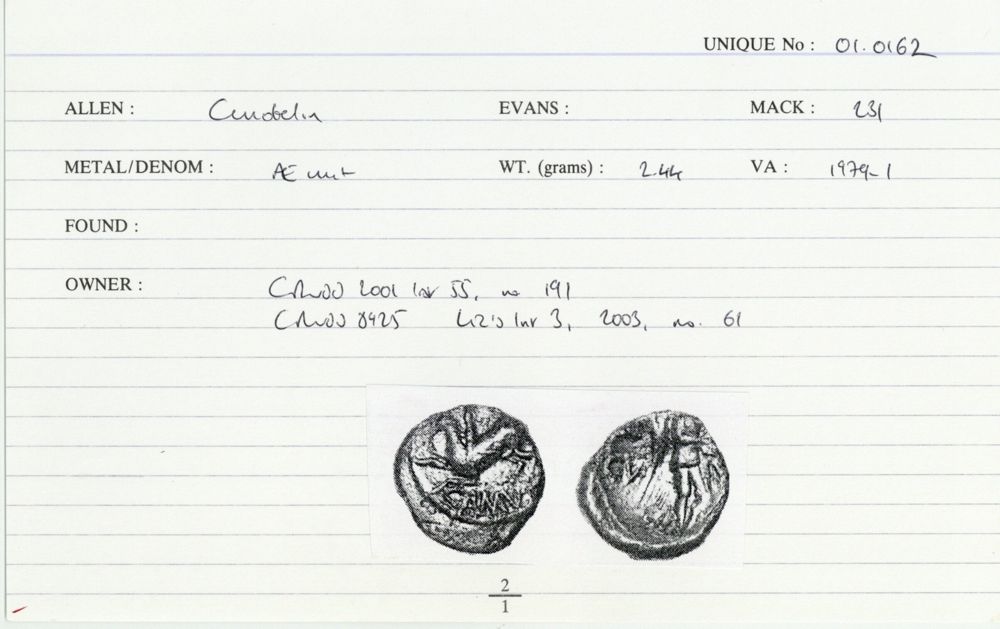 UNIQUE No : 01.0162
ALLEN : Cunobelin EVANS : MACK : 231
METAL/DENOM : Æ unit WT. (grams) : 2.44 VA : 1979-1
FOUND :
OWNER : 2001 55, no 191
Liz's 3, 2003, no. 61
CAMV
2
1